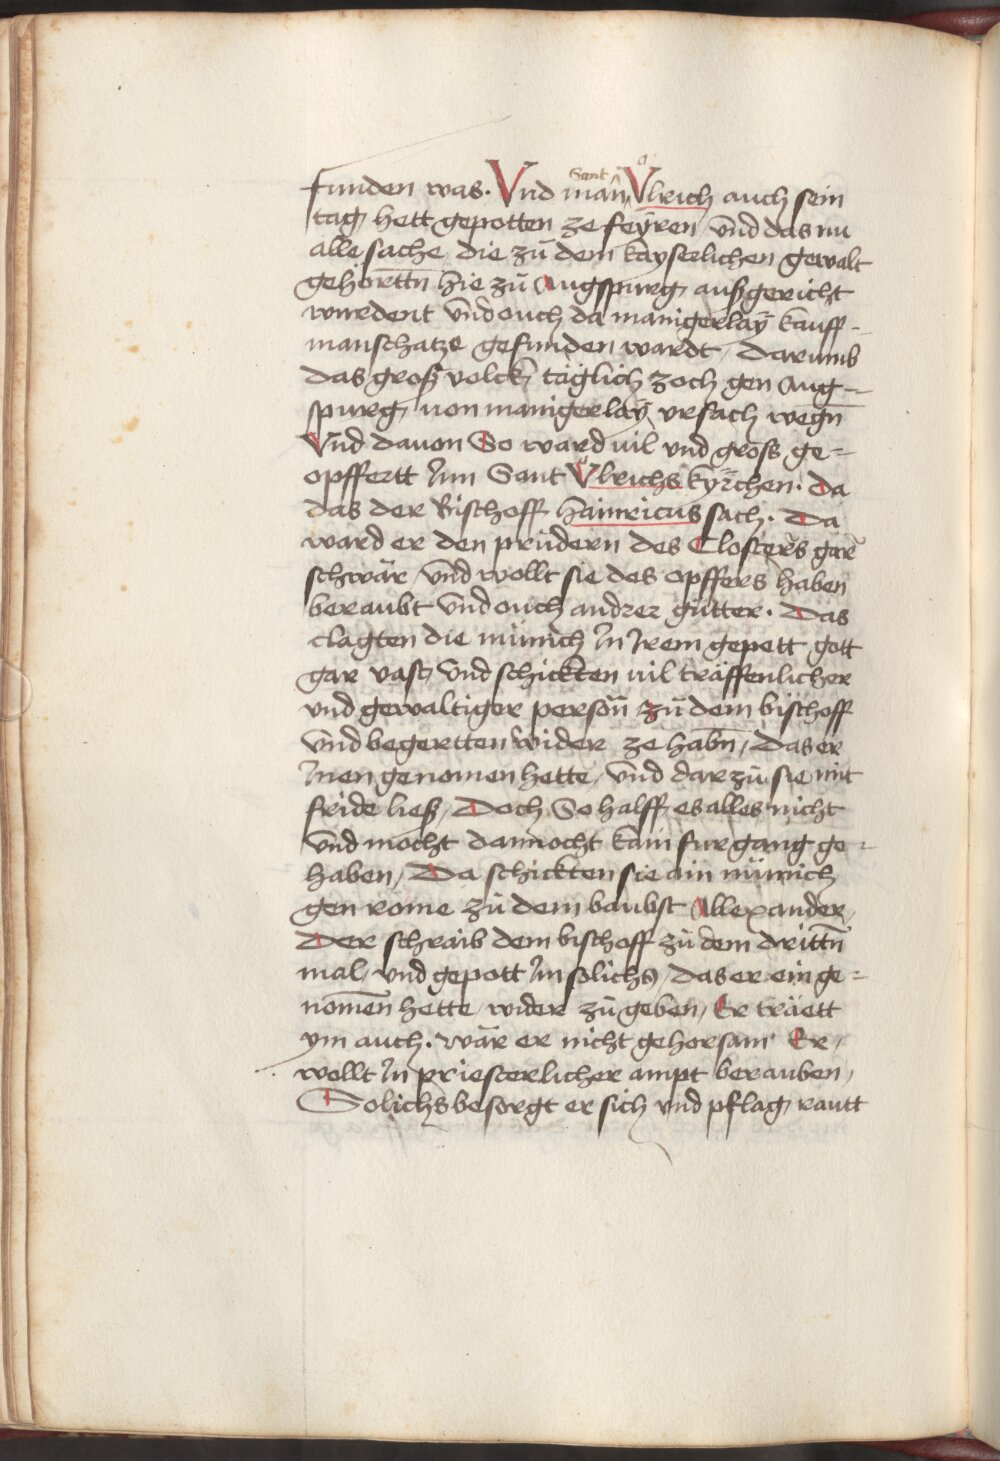 funden was. Vnd man Sant Vͦlrich auch sein
tag hett gepotten ze feÿren vnd das nu
alle sache die zů dem kayserlichen gewalt
gehorttn̄ hie zů Augspurg außgericht
wurdent vnd ouch da manigerlaÿ kauff-
manschatze gefunden wardt, darumb
das groß volck täglich zoch gen Aug=
spurg von manigerlaÿ vrsach wegn̄
Vnd dauon So ward vil vnd gross ge=
opffertt Jnn Sant Vͦlrichs kÿrchen. Da
das der Bischoff hainricus sach. Da
ward er den prüdern des Closters gar
schwär vnd wollt sie des opffers haben
beraubt vnd ouch andrer gütter. Das
clagten die münich Jn Jrem gepett gott
gar vast vnd schickten vil träffenlicher
vnd gewaltiger person̄ zů dem bischoff
vnd begertten wider ze habn̄, Das er
Jnen genomen hette, vnd dar zů sie mit
fride ließ, Doch So halff es alles nicht
vnd mocht dannocht kain furgang ge=
haben, Da schickten sie ain münich
gen rome zů dem baubst Allexander,
Der schraib dem bischoff zů dem drittn̄
mal vnd gepott Jm solichs, das er ein ge=
nomen hette wider zů geben, Er träett
ym auch. wär er nicht gehorsam Er,
wollt Jn priesterlicher ampt berauben,
Solichs besorgt er sich vnd pflag rautt